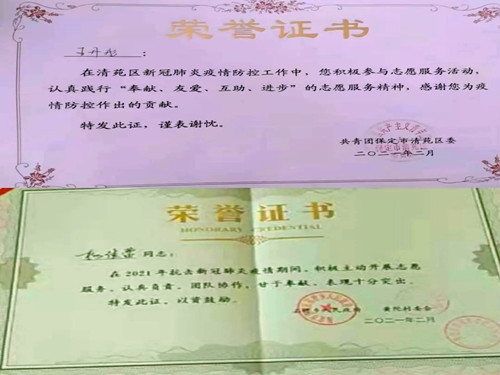 荣誉证书
王丹彤：
在清苑区新冠肺炎疫情防控工作中，您积极参与志愿服务活动，
认真践行“奉献、友爱、互助、进步”的志愿服务精神，感谢您为疫
情防控作出的贡献。
特发此证，谨表谢忱。
共青团保定市清苑区委
二〇二一年二月
荣誉证书
HONORARY CREDENTIAL
同志：
在2021年抗击新冠肺炎疫情期间，积极主动开展志愿
服务，认真负责，团队协作，甘于奉献、表现十分突出。
特发此证、以资鼓励。
乡人民政府 村委会
二〇二一年二月